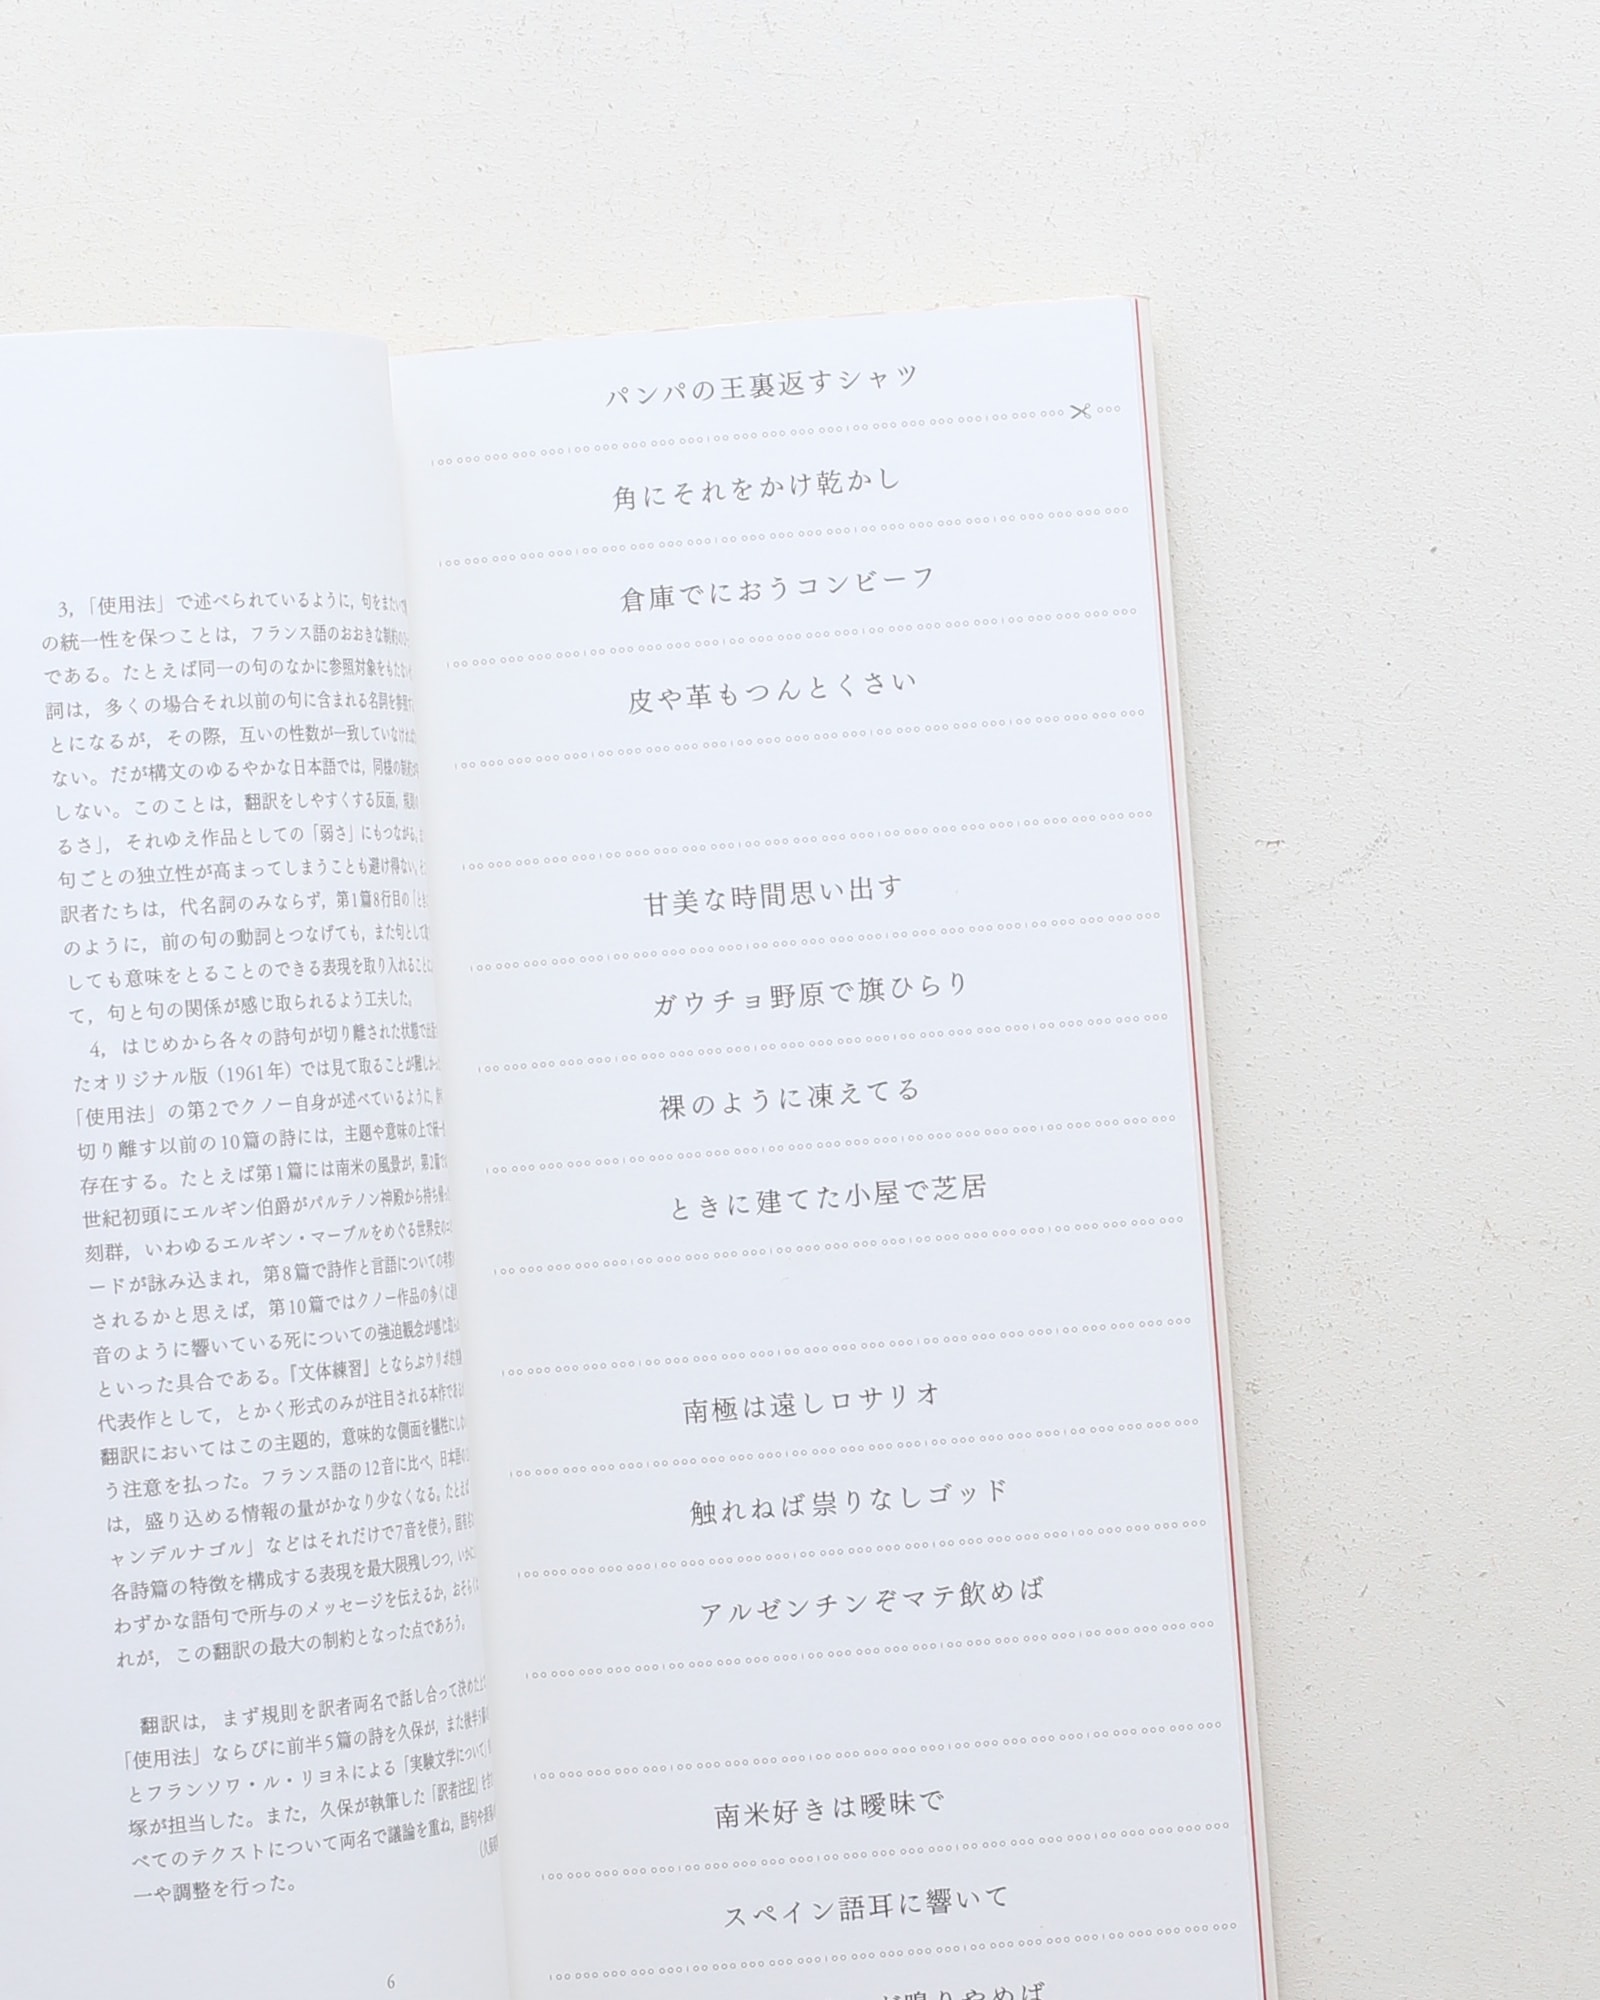 3,「使用法」で述べられているように, 句をまたいで
の統一性を保つことは, フランス語のおおきな制約の
である。たとえば同一の句のなかに参照対象をもたない
詞は, 多くの場合それ以前の句に含まれる名詞を参照す
とになるが, その際, 互いの性数が一致していなければ
ない。だが構文のゆるやかな日本語では, 同様の制約は
しない。このことは, 翻訳をしやすくする反面, 規則の
るさ」, それゆえ作品としての「弱さ」にもつながる。
句ごとの独立性が高まってしまうことも避け得ない。
訳者たちは, 代名詞のみならず, 第1篇8行目の「とき
のように, 前の句の動詞とつなげても, また句として
しても意味をとることのできる表現を取り入れることに
て, 句と句の関係が感じ取られるよう工夫した。
4, はじめから各々の詩句が切り離された状態で
たオリジナル版（1961年）では見て取ることが難しか
「使用法」の第2でクノー自身が述べているように,
切り離す以前の10篇の詩には, 主題や意味の上で統一
存在する。たとえば第1篇には南米の風景が, 第2篇で
世紀初頭にエルギン伯爵がパルテノン神殿から持ち帰
刻群, いわゆるエルギン・マーブルをめぐる世界史の
ードが詠み込まれ, 第8篇で詩作と言語についての考察
されるかと思えば, 第10篇ではクノー作品の多くに通
音のように響いている死についての強迫観念が感じ取
といった具合である。『文体練習』とならぶウリポ
代表作として, とかく形式のみが注目される本作である
翻訳においてはこの主題的, 意味的な側面を犠牲にし
う注意を払った。フランス語の12音に比べ, 日本語の
は, 盛り込める情報の量がかなり少なくなる。たとえば
ャンデルナゴル」などはそれだけで7音を使う。固有
各詩篇の特徴を構成する表現を最大限残しつつ, いか
わずかな語句で所与のメッセージを伝えるか, おそらく
れが, この翻訳の最大の制約となった点であろう。
翻訳は, まず規則を訳者両名で話し合って決めた上
「使用法」ならびに前半5篇の詩を久保が, また後半5篇
とフランソワ・ル・リヨネによる「実験文学について」
塚が担当した。また, 久保が執筆した「訳者注記」を
べてのテクストについて両名で議論を重ね, 語句や表
一や調整を行った。
6
パンパの王裏返すシャツ
角にそれをかけ乾かし
倉庫でにおうコンビーフ
皮や革もつんとくさい
甘美な時間思い出す
ガウチョ野原で旗ひらり
裸のように凍えてる
ときに建てた小屋で芝居
南極は遠しロサリオ
触れねば祟りなしゴッド
アルゼンチンぞマテ飲めば
南米好きは曖昧で
スペイン語耳に響いて
が鳴りやめば